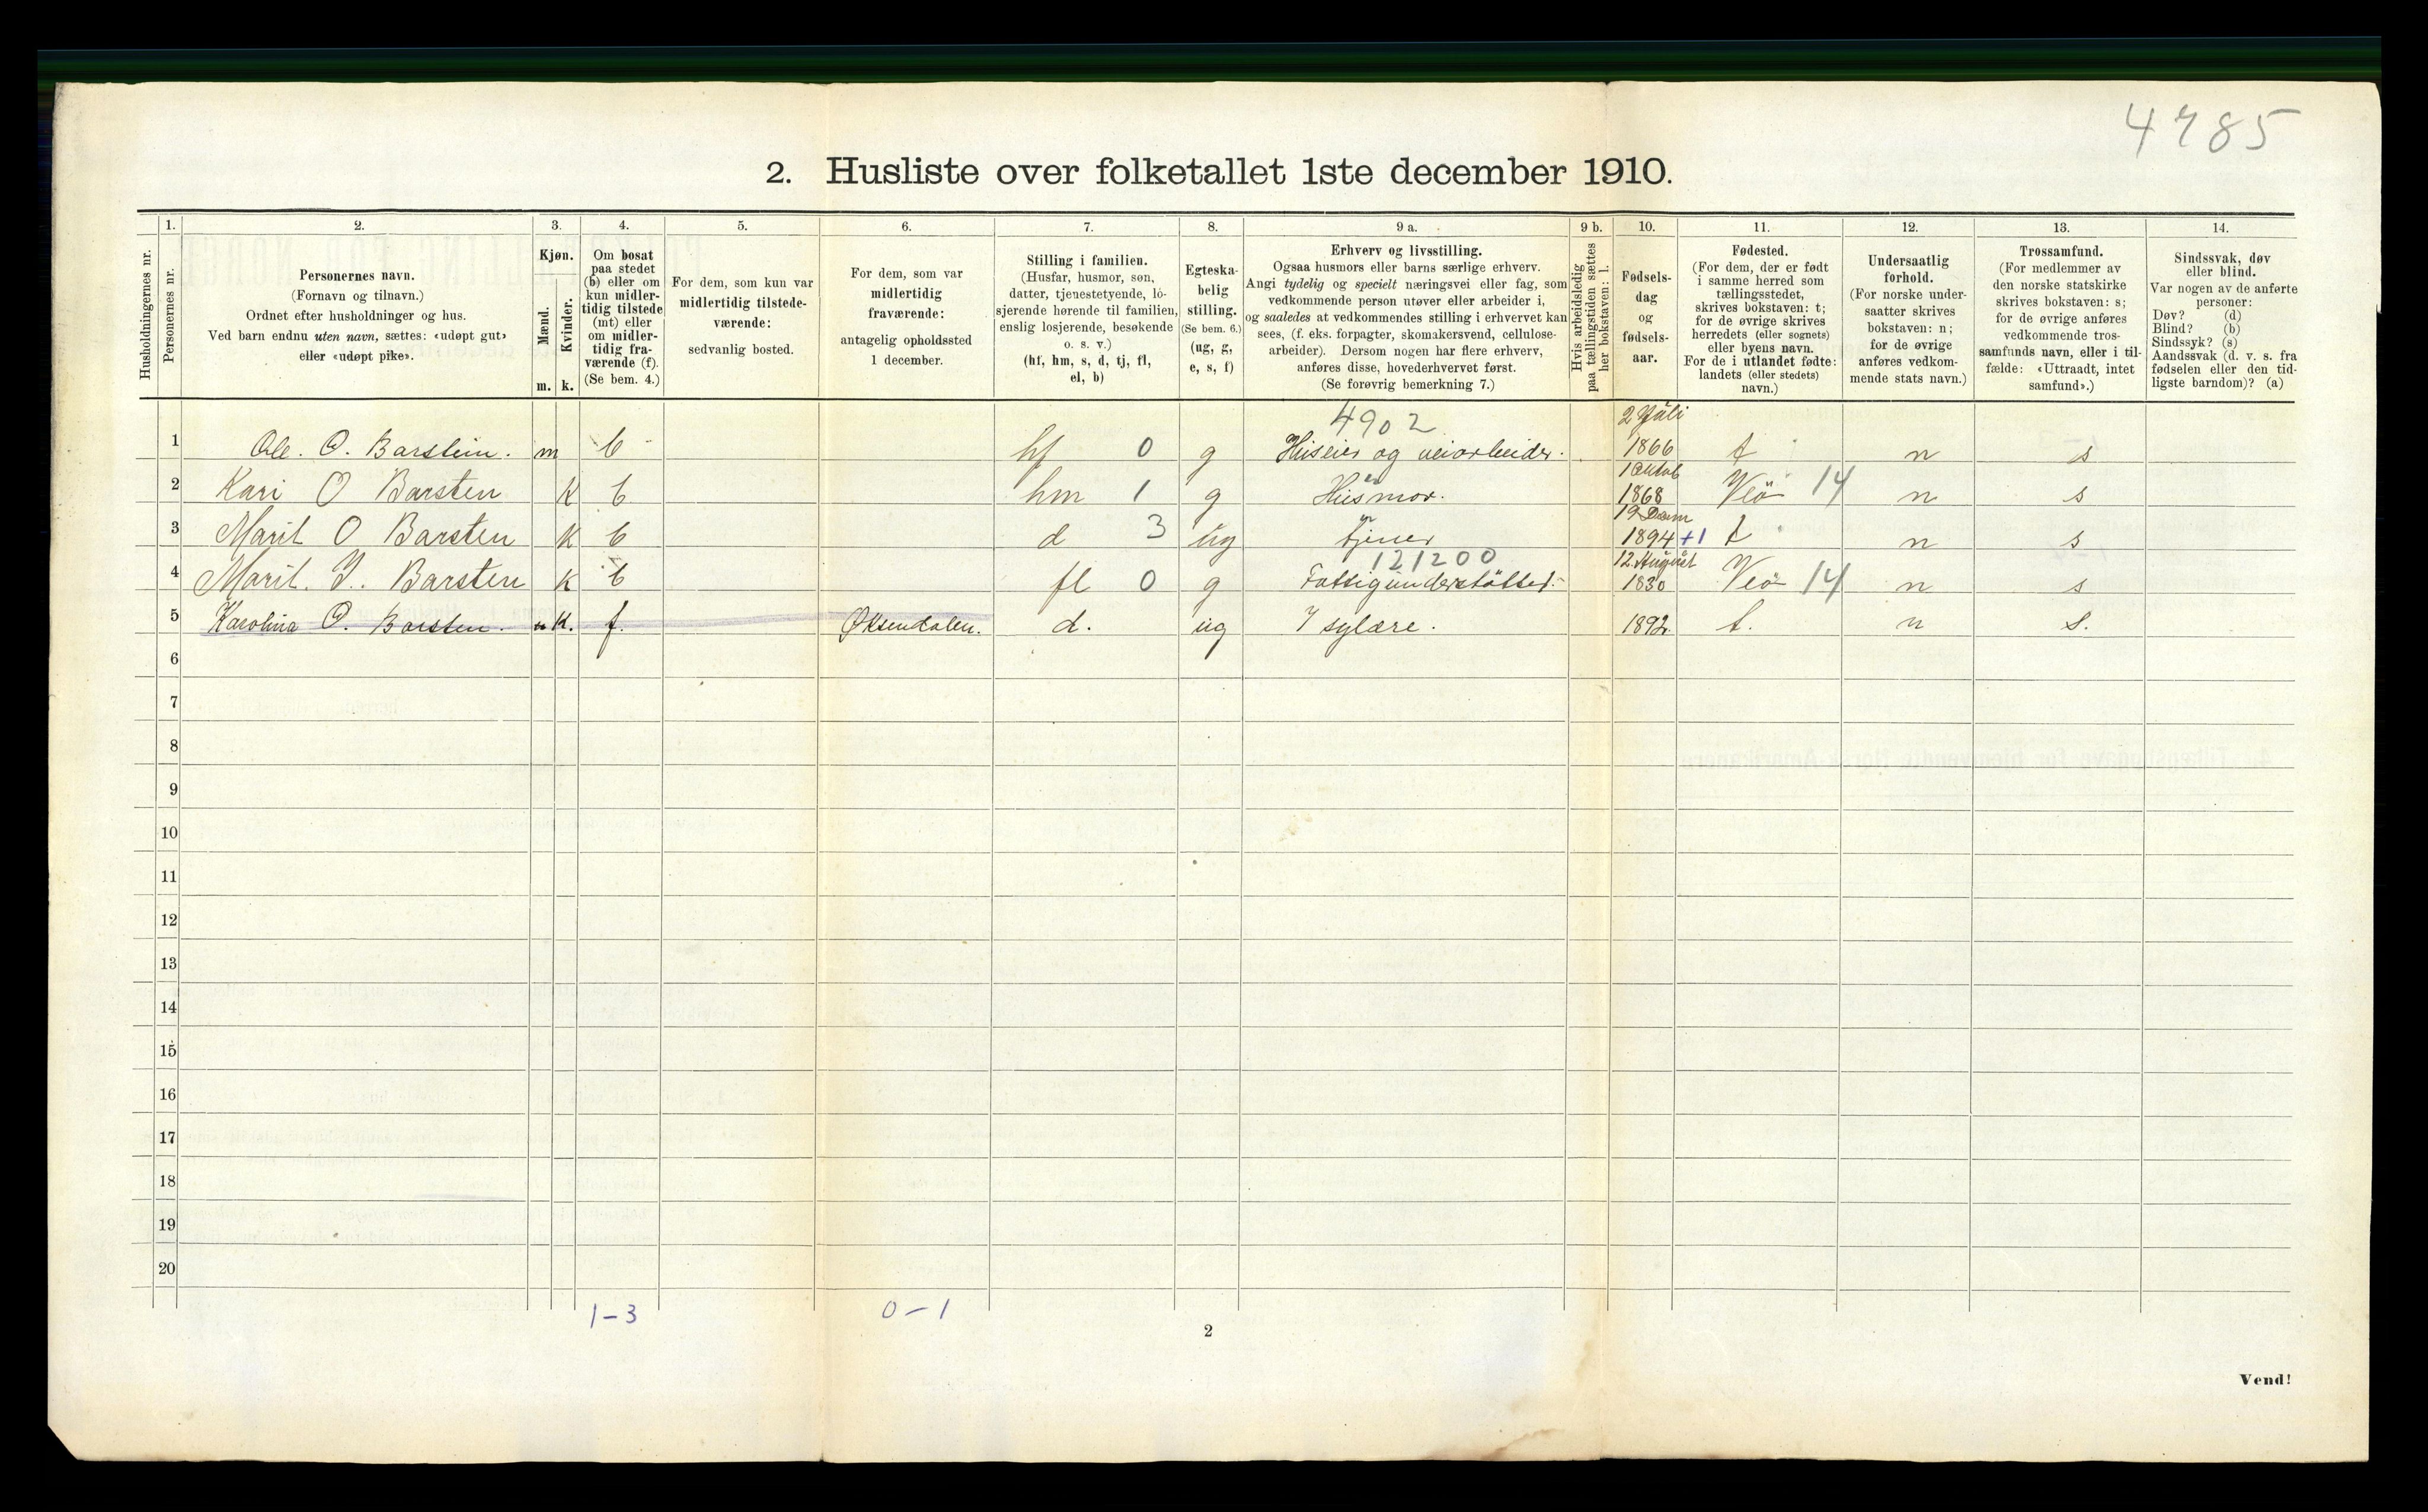 4785
2. Husliste over folketallet 1ste december 1910.
Husholdningernes nr.
1.
Personernes nr.
2.
Personernes navn.
(Fornavn og tilnavn.)
Ordnet efter husholdninger og hus.
Ved barn endnu uten navn, sættes: «udøpt gut»
eller «udøpt pike».
3.
Kjøn.
Mænd.
Kvinder.
m. k.
4.
Om bosat
paa stedet
(b) eller om
kun midler-
tidig tilstede
(mt) eller
om midler-
tidig fra-
værende (f).
(Se bem. 4.)
5.
For dem, som kun var
midlertidig tilstede-
værende:
sedvanlig bosted.
6.
For dem, som var
midlertidig
fraværende:
antagelig opholdssted
1 december.
7.
Stilling i familien.
(Husfar, husmor, søn,
datter, tjenestetyende, lo-
sjerende hørende til familien,
enslig losjerende, besøkende
o. s. v.)
(hf, hm, s, d, tj, fl,
el, b)
8.
Egteska-
belig
stilling.
(Se bem. 6.)
(ug, g,
e, s, f)
9 a.
Erhverv og livsstilling.
Ogsaa husmors eller barns særlige erhverv.
Angi tydelig og specielt næringsvei eller fag, som
vedkommende person utøver eller arbeider i,
og saaledes at vedkommendes stilling i erhvervet kan
sees, (f. eks. forpagter, skomakersvend, cellulose-
arbeider). Dersom nogen har flere erhverv,
anføres disse, hovederhvervet først.
(Se forøvrig bemerkning 7.)
9 b.
Hvis arbeidsledig
paa tællingstiden sættes
her bokstaven: l.
10.
Fødsels-
dag
og
fødsels-
aar.
11.
Fødested.
(For dem, der er født
i samme herred som
tællingsstedet,
skrives bokstaven: t;
for de øvrige skrives
herredets (eller sognets)
eller byens navn.
For de i utlandet fødte:
landets (eller stedets)
navn.)
12.
Undersaatlig
forhold.
(For norske under-
saatter skrives
bokstaven: n;
for de øvrige
anføres vedkom-
mende stats navn.)
13.
Trossamfund.
(For medlemmer av
den norske statskirke
skrives bokstaven: s;
for de øvrige anføres
vedkommende tros-
samfunds navn, eller i til-
fælde: «Uttraadt, intet
samfund».)
14.
Sindssvak, døv
eller blind.
Var nogen av de anførte
personer:
Døv? (d)
Blind? (b)
Sindssyk? (s)
Aandssvak (d. v. s. fra
fødselen eller den tid-
ligste barndom)? (a)
4902 2 Juli
1 Ole. O. Barstein. m b hf 0 g Huseier og veiarbeider. 1866 t n s
2 Kari O Barsten k b hm 1 g Husmor. 1868 Veö 14 n s
3 Marit O Barsten k b d 3 ug tjener 1894 +1 t n s
121200 12 August
4 Marit. I. Barsten k b fl 0 g Fattigunderstöttet. 1830 Veö 14 n s
5 Karolina O. Barsten. k. f. Øksendalen. d. ug I sylære. 1892. t. n s.
6
7
8
9
10
11
12
13
14
15
16
17
18
19
20
1-3 0-1
2
Vend!